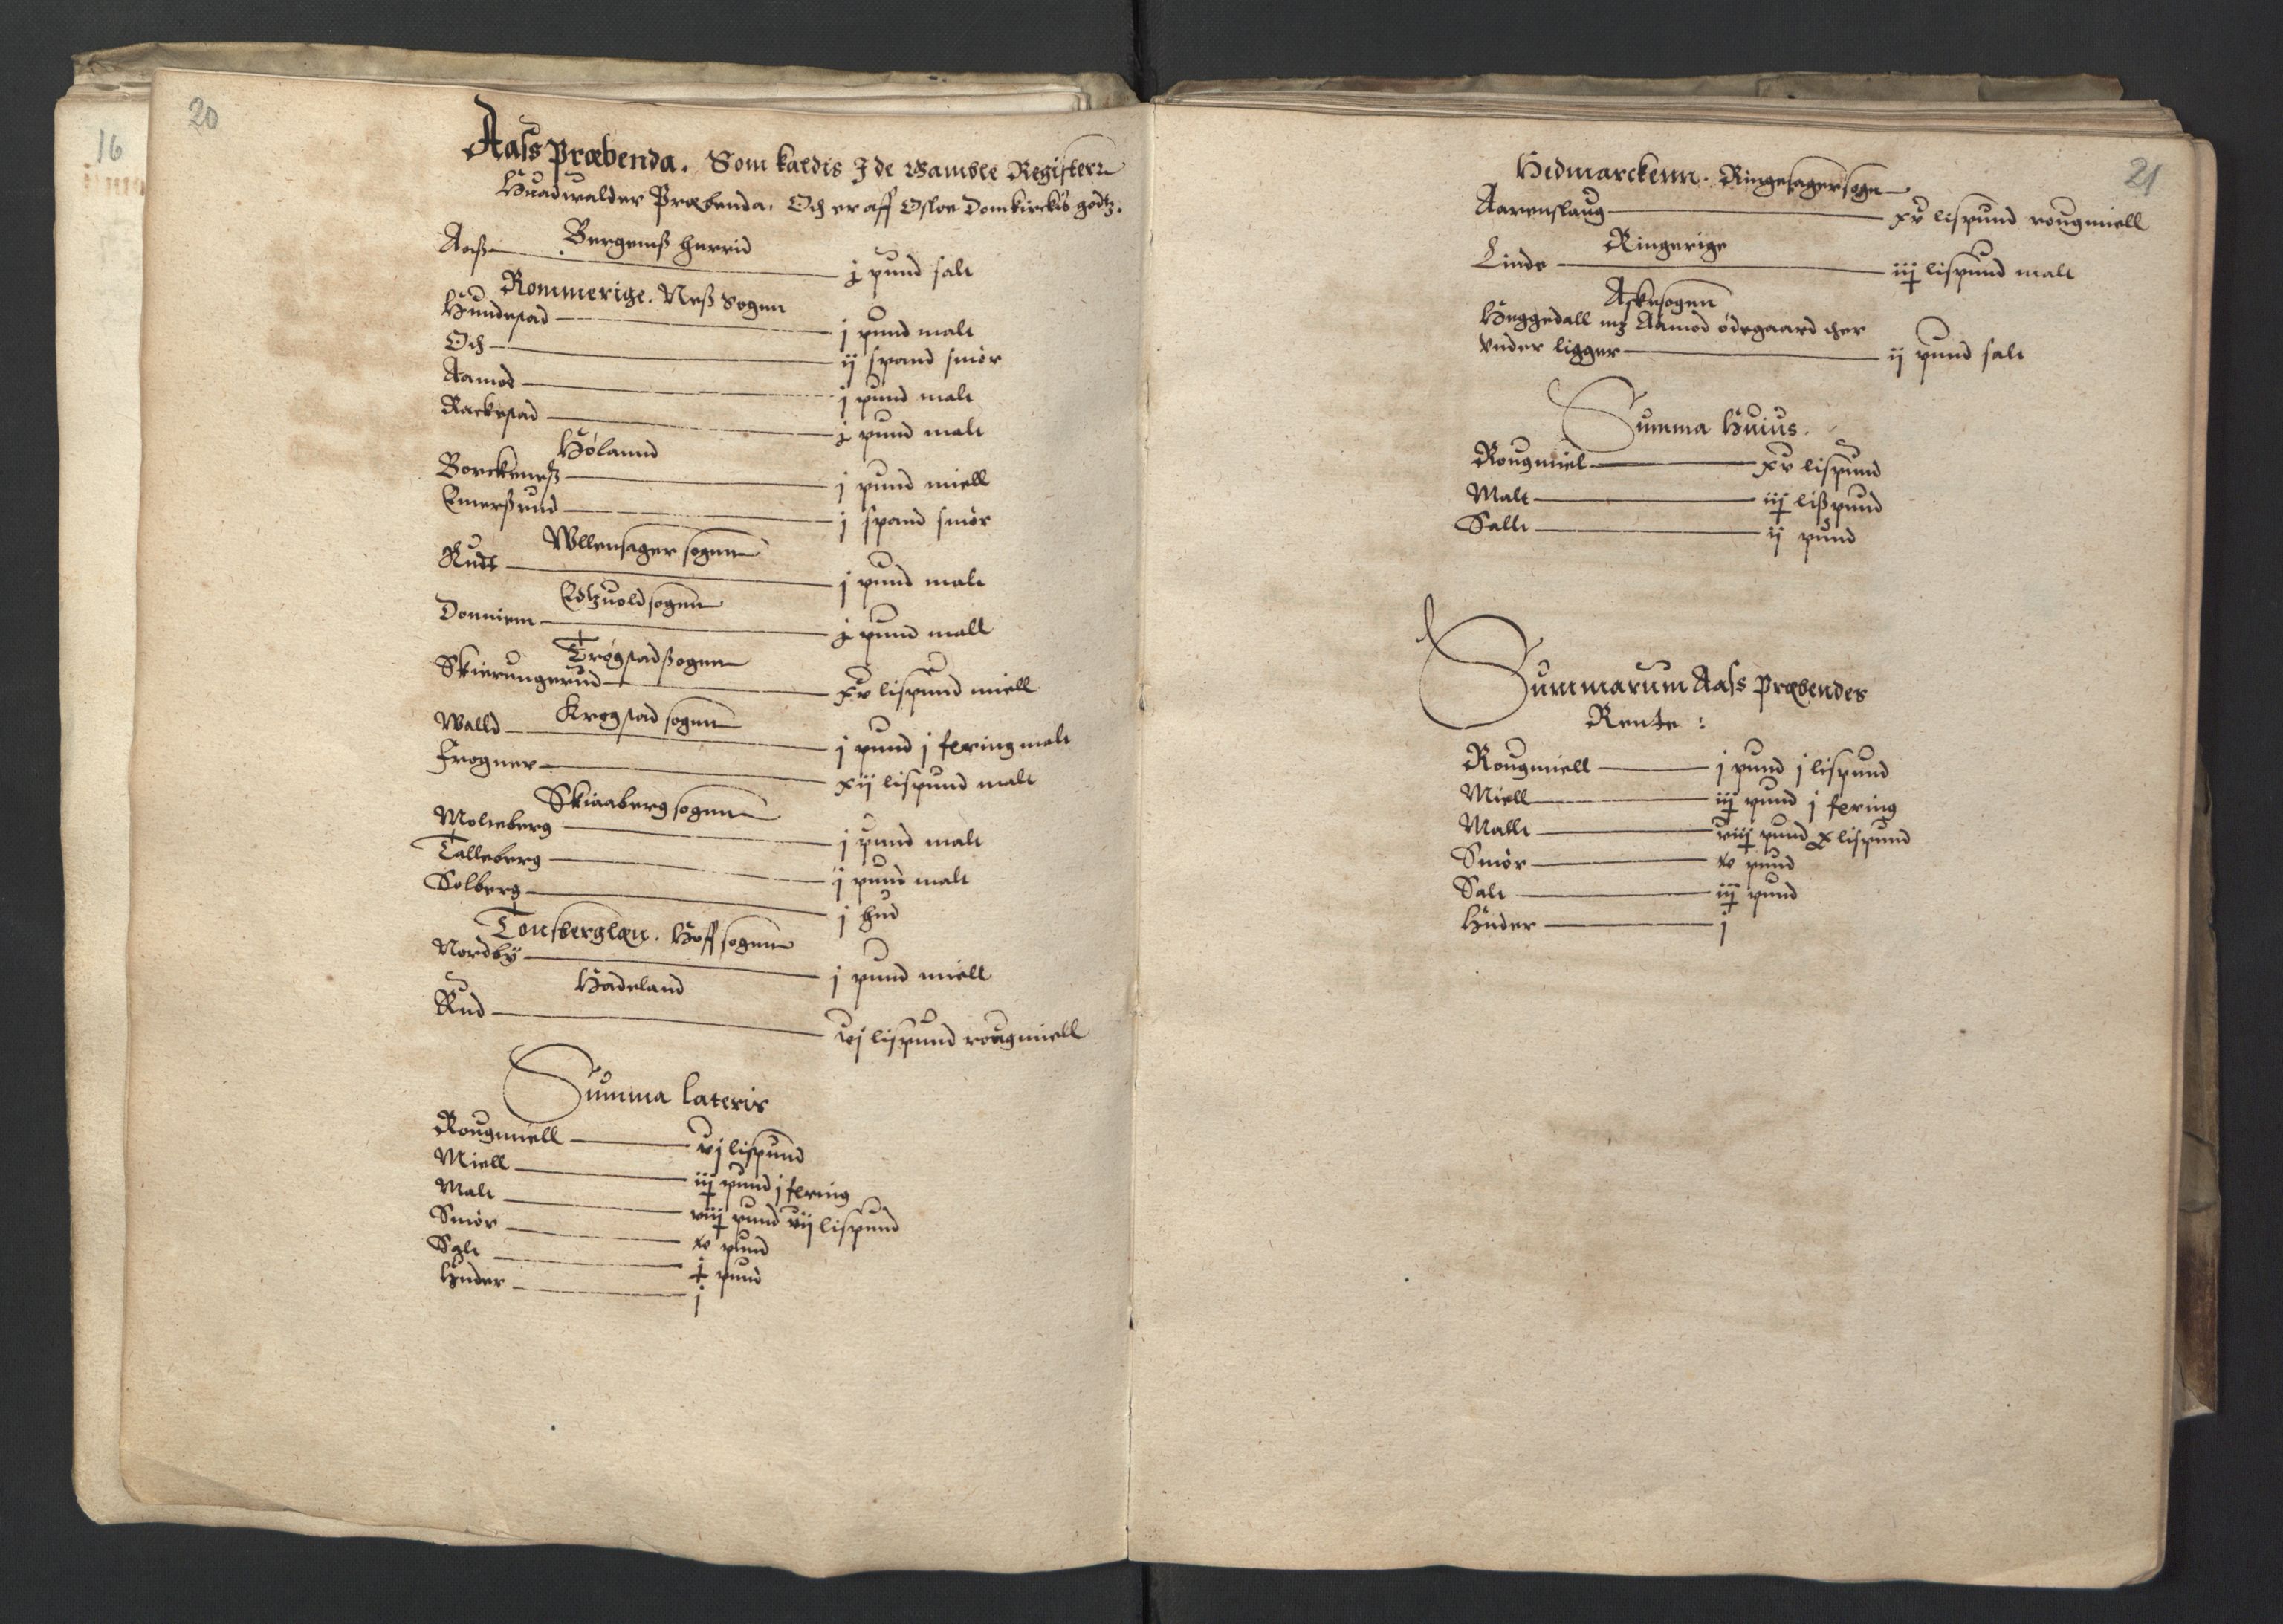 20
16
Aass Præbenda. Som kaldis J de Gamble Register
Huadwalder Præbenda. Och er aff Osloe Domkirckis godtz.
Bergems herrid
Aass j pund salt
Rommerige. Ness Sogenn
Hundstad j pund malt
Och ij spand smør
Aamod j pund malt
Rackestad j pund malt
Hølannd
Borckeness j pund miell
Emerssrud j spand smør
Wllensager sogenn
Rudt j pund malt
Edtzuold sogenn
Donniem j pund malt
Trøgstad ssogenn
Skierungerud xv lispund miell
Krogstad sogenn
Walld j pund j fering malt
Frogner xij lispund malt
Skiaaberg sogenn
Molteberg j pund malt
Talleberg j pund malt
Solberg j hud
Tonsberg læn. Hoff sogenn
Nordby j pund miell
Hadeland
Rud vj lispund rougmiell
Summa lateris
Rougmiell vj lispund
Miell iij pund j fering
Malt viij pund vij lispund
Smør pund
Salt j pund
Huder j
21
Hedmarckenn. Ringesager sogn
Aarenslaug xv lispund rougmiell
Ringerige
Linde iij lispund malt
Aske sogenn
Heggedall mz Aamod ødegaard ther
vnder ligger ij pund salt
Summa Huius.
Rougmiel xv lispund
Malt iij lisspund
Sallt ij pund
Summarum Aass Præbendes
Rente :
Rougmiell j pund j lispund
Miell iij pund j fering
Mallt viij pund x lispund
Smør pund
Salt iij pund
Huder j